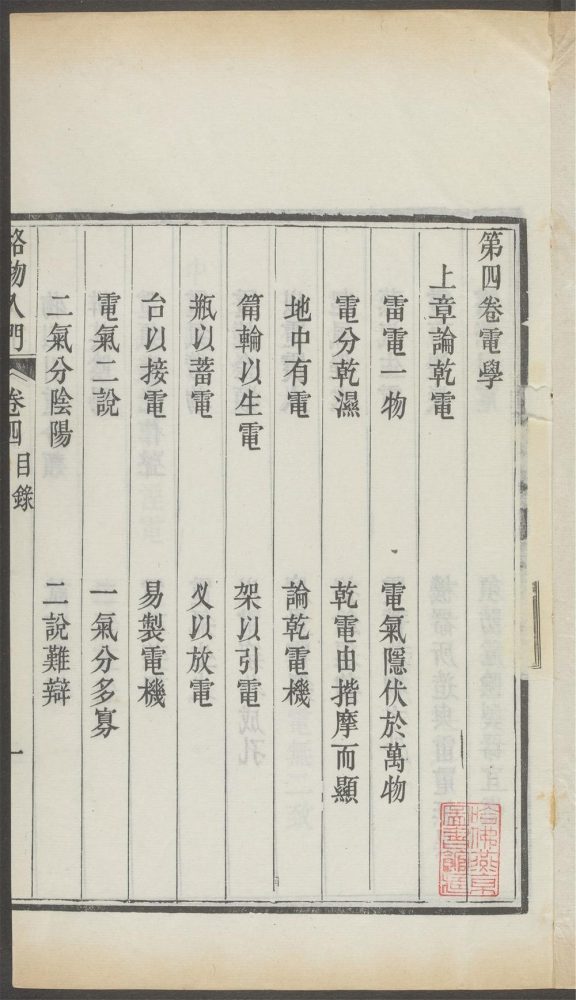 第四卷電學
上章論乾電
雷電一物 電氣隱伏於萬物
電分乾濕 乾電由揩摩而顯
地中有電 論乾電機
筩輪以生電 架以引電
瓶以蓄電 义以放電
台以接電 易製電機
電氣二說 一氣分多寡
二氣分陰陽 二說難辯
格物入門 卷四 目錄 一
哈佛燕京圖書館